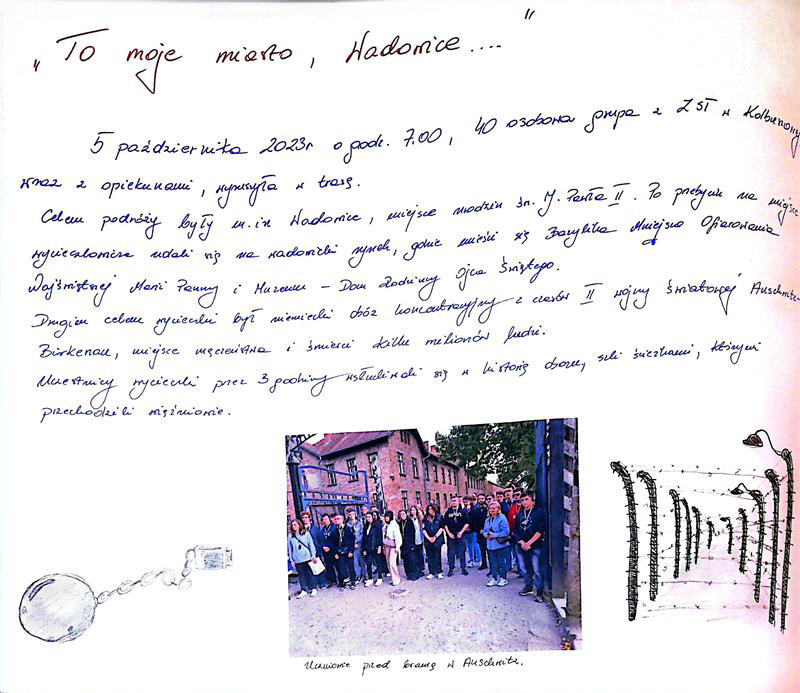 „To moje miasto, Wadowice...."
5 października 2023r o godz. 7.00, 40 osobowa grupa z ZST w Kolbuszowej
wraz z opiekunami, wyruszyła w trasę.
Celem podróży były m.in Wadowice, miejsce urodzin św. J. Pawła II. Po przybyciu na miejsce
wycieczkowicze udali się na wadowicki rynek, gdzie mieści się Bazylika Mniejsza Ofiarowania
Najświętszej Marii Panny i Muzeum - Dom Rodzinny Ojca Świętego.
Drugim celem wycieczki był niemiecki obóz koncentracyjny z czasów II wojny światowej Auschwitz-
Birkenau, miejsce męczeństwa i śmierci kilku milionów ludzi.
Uczestnicy wycieczki przez 3 godziny wsłuchiwali się w historię obozu, szli ścieżkami, którymi
przechodzili więźniowie.
Uczniowie przed bramą w Auschwitz.